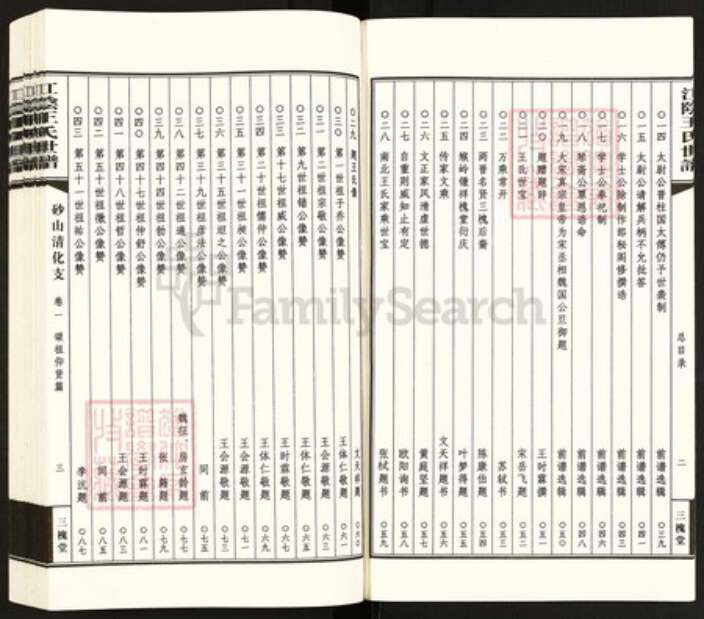 江陰王氏世譜
总目录
二
三槐堂
〇一四 太尉公晋柱国太傅仍予世袭制 前谱选辑 〇三九
〇一五 太尉公请解兵柄不允批答 前谱选辑 〇四一
〇一六 学士公除制作郎秘阁修撰诰 前谱选辑 〇四三
〇一七 学士公奉祀制 前谱选辑 〇四六
〇一八 琴斋公覃恩诰命 前谱选辑 〇四八
〇一九 大宋真宗皇帝为宋丞相魏国公旦御题 前谱选辑 〇五〇
〇二〇 题赠题辞 王时霖撰 〇五一
〇二一 王氏世宝 宋岳飞题 〇五二
〇二二 万乘常开 苏轼书 〇五三
〇二三 两晋名贤三槐后裔 陈康伯题 〇五四
〇二四 缑岭仙祥槐堂衍庆 叶梦得题 〇五五
〇二五 传家文乘 文天祥题书 〇五六
〇二六 文正家风清虚世德 黄庭坚题 〇五七
〇二七 自重则威知止有定 欧阳询书 〇五八
〇二八 南北王氏家乘世宝 张栻题书 〇五九
〇二九 题王氏像 文天祥题 〇六〇
〇三〇 第一世祖子乔公像赞 王体仁敬题 〇六一
〇三一 第二世祖宗敬公像赞 王会源敬题 〇六三
〇三二 第九世祖错公像赞 王体仁敬题 〇六五
〇三三 第十七世祖威公像赞 王时霖敬题 〇六七
〇三四 第二十世祖儒仲公像赞 王体仁敬题 〇六九
〇三五 第三十一世祖昶公像赞 王会源敬题 〇七一
〇三六 第三十五世祖遐之公像赞 王会源敬题 〇七三
〇三七 第三十九世祖彦法公像赞 同前 〇七五
〇三八 第四十二世祖通公像赞 魏征 房玄龄题 〇七七
〇三九 第四十四世祖勃公像赞 张 题 〇七九
〇四〇 第四十七世祖仲舒公像赞 王时霖题 〇八一
〇四一 第四十八世祖哲公像赞 王会源题 〇八三
〇四二 第五十世祖徹公像赞 同前 〇八五
〇四三 第五十一世祖祐公像赞 李沆题 〇八七
江陰王氏世譜
砂山清化支
卷一 颂祖仰贤篇
三
三槐堂
FamilySearch